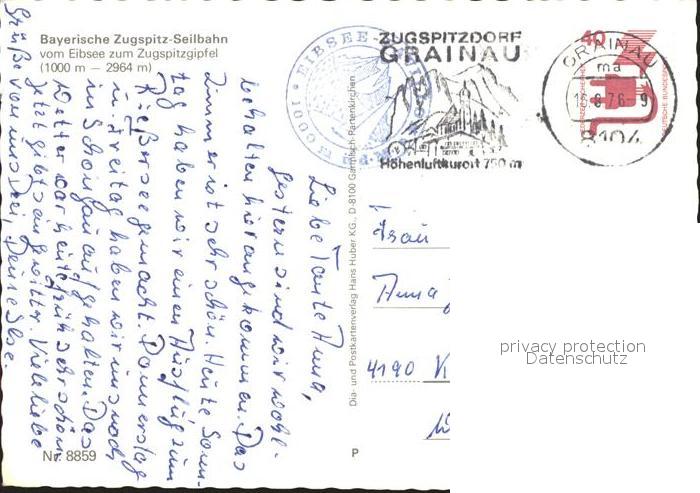 Bayerische Zugspitz-Seilbahn
vom Eibsee zum Zugspitzgipfel
(1000 m — 2964 m)
ZUGSPITZDORF
GRAINAU
Höhenluftkurort 750 m
EIBSEE
1000 m
GRAINAU
ma
8.76-9
8104
40
DEUTSCHE BUNDESPOST
Liebe Tante Anna,
gestern sind wir wohl-
behalten hier angekommen. Das
Zimmer ist sehr schön. Heute Sonn-
tag haben wir einen Ausflug zum
Rießersee gemacht. Donnerstag
in Freitag haben wir uns noch
in Schongau aufgehalten. Das
Wetter war heute früh sehr schön
jetzt gibts ein gewitter. Viele liebe
Grüße von uns drei, Deine Ilse.
Dia- und Postkartenverlag Hans Huber KG., D-8100 Garmisch-Partenkirchen
Frau
Anna
4190 K
Nr. 8859
P
privacy protection
Datenschutz